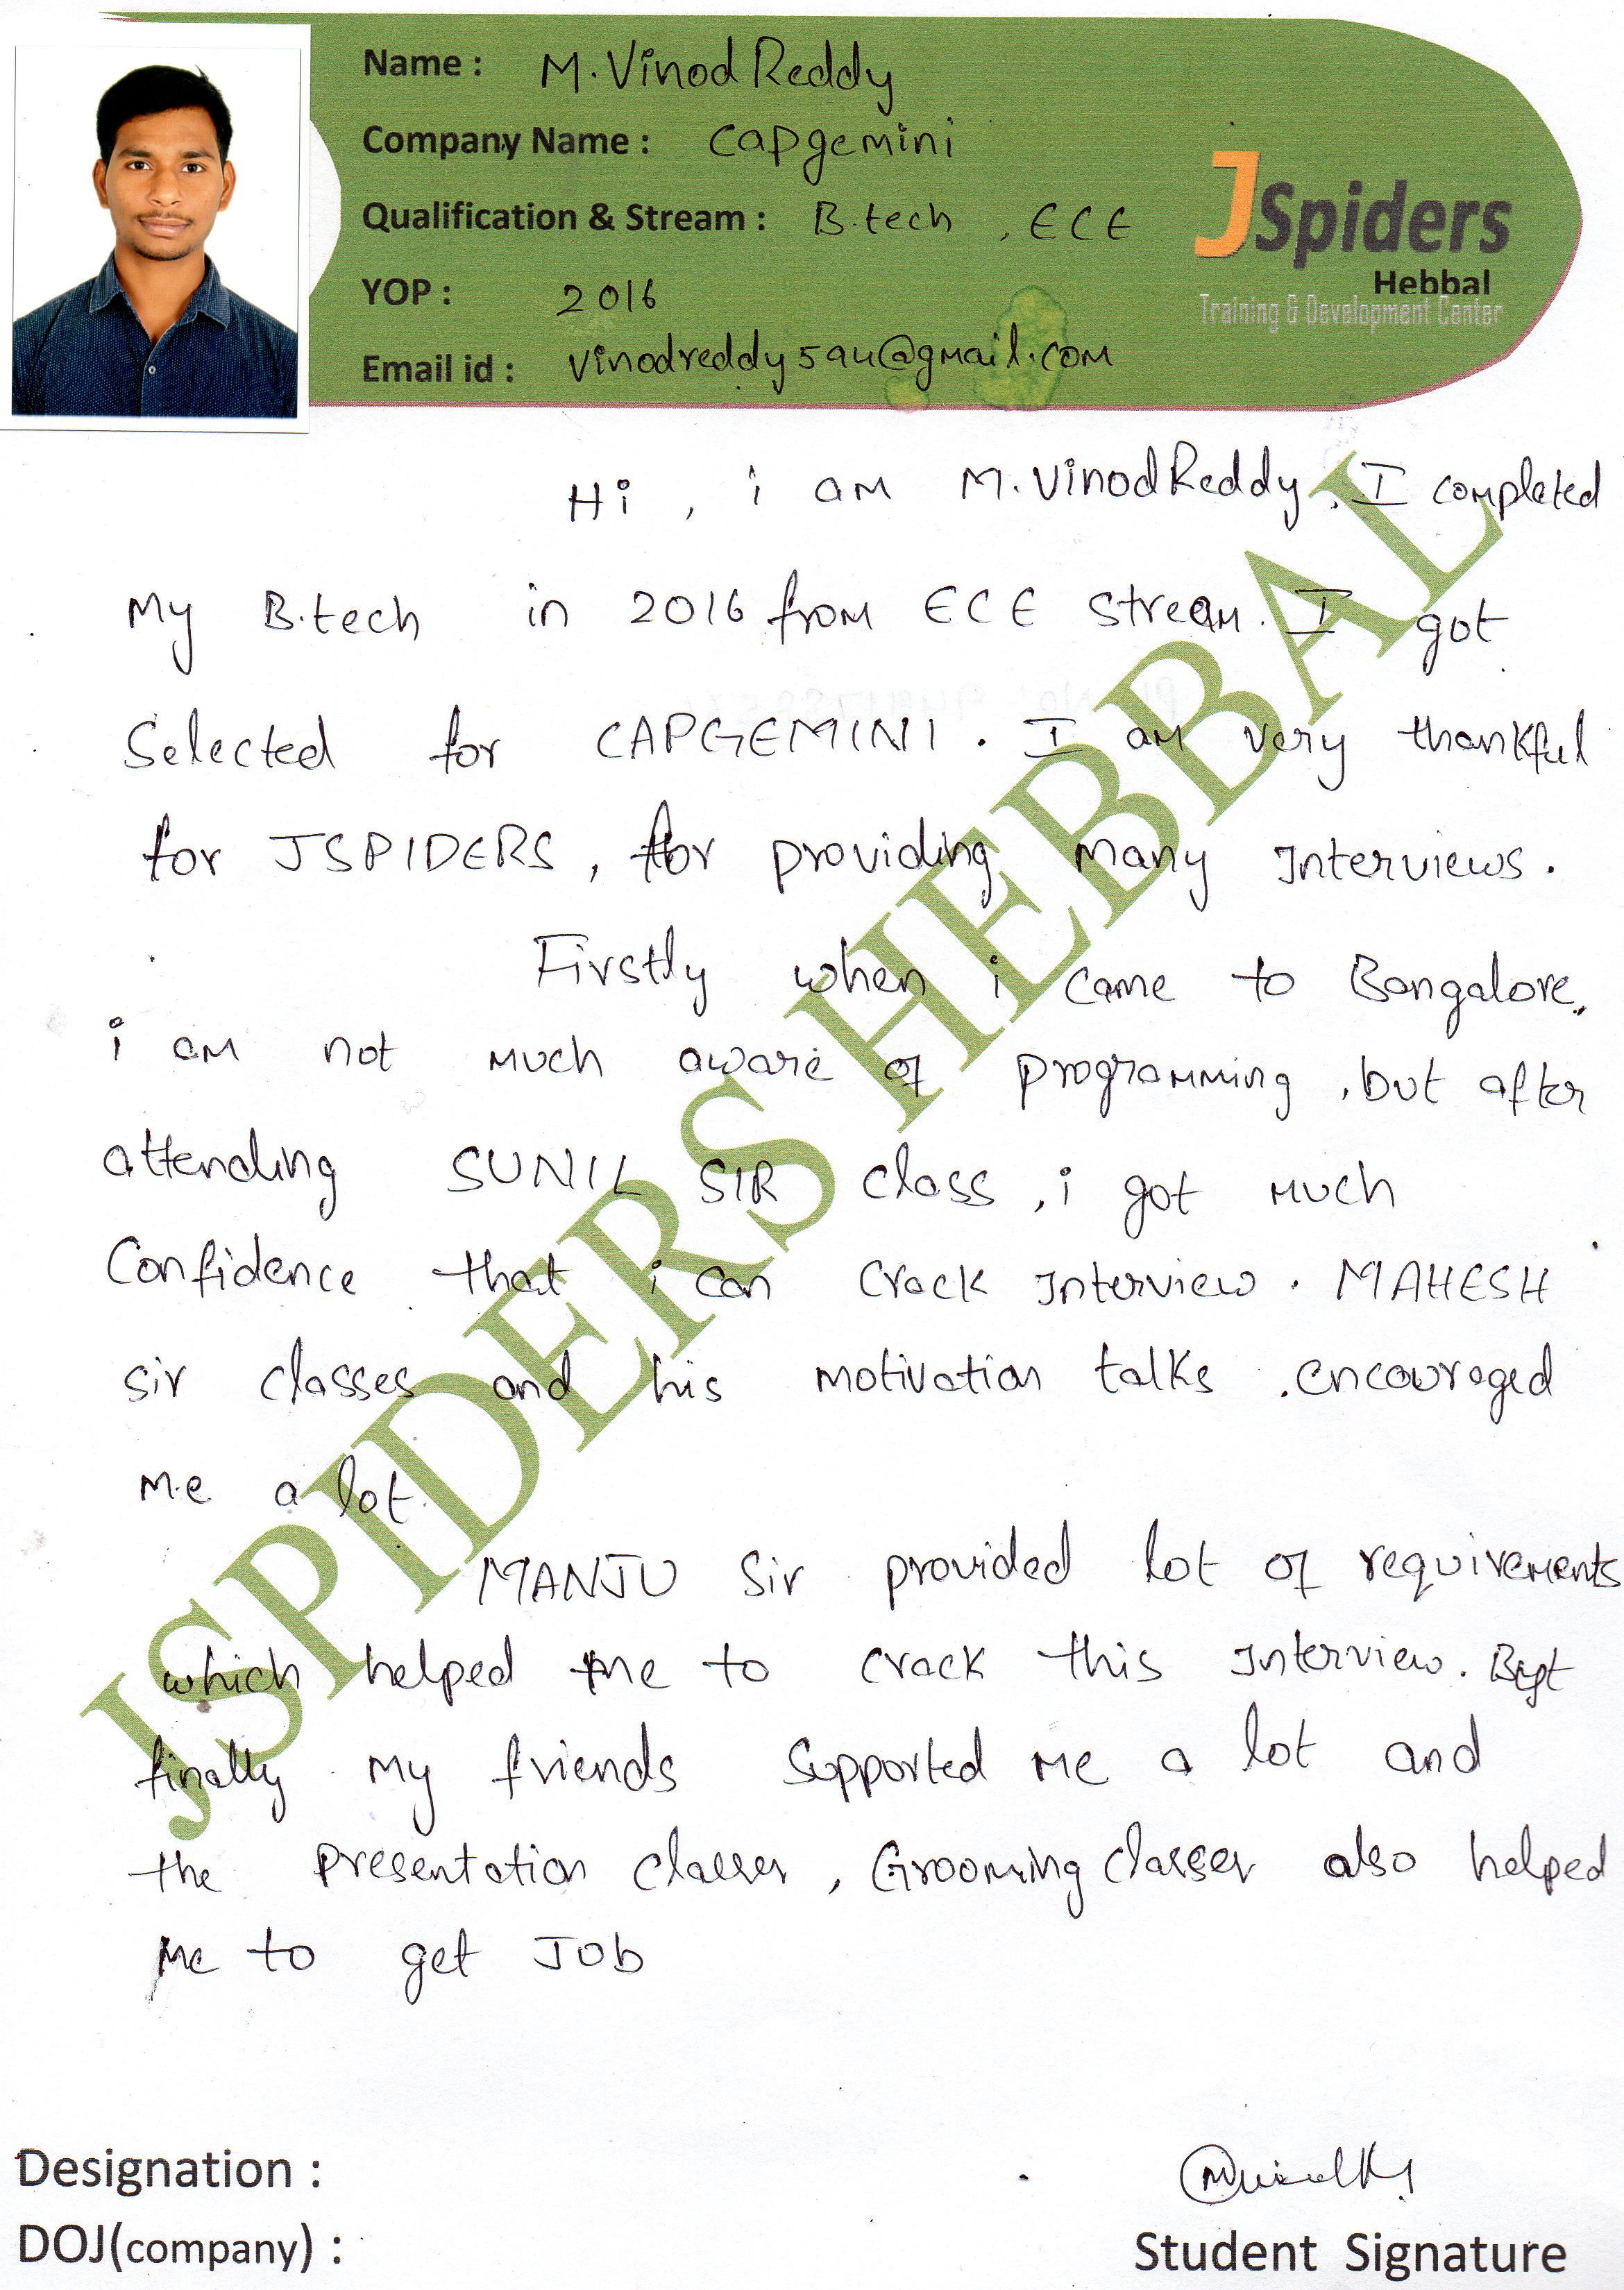 Name : M.Vinod Reddy
Company Name : capgemini
Qualification & Stream : B.tech , ECE
YOP : 2016
Email id : vinodreddy594@gmail.com
JSpiders
Hebbal
Training & Development Center
Hi , i am M.Vinod Reddy. I completed
My B.tech in 2016 from ECE stream. I got
selected for CAPGEMINI. I am very thankful
for JSPIDERS, for providing many Interviews.
Firstly when i came to Bangalore,
i am not much aware of programming, but after
attending SUNIL SIR class, i got much
Confidence that i can crack Interview. MAHESH
sir classes and his motivation talks encouraged
me a lot.
MANJU Sir provided lot of requirements
which helped me to crack this Interview.
finally my friends supported me a lot and
the presentation classes, Grooming classes also helped
me to get Job
JSPIDERS HEBBAL
Designation :
DOJ(company) :
Student Signature